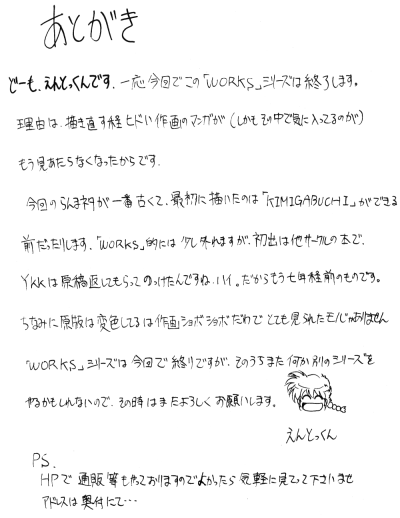 あとがき
どーも、えんとっくんです、一応今回でこの「WORKS」シリーズは終了します。
理由は、描き直す程ヒドい作画のマンガが(しかもその中で気に入ってるのが)
もう見あたらなくなったからです.
今回のらんまネタが一番古くて、最初に描いたのは「KIMIGABUCHI」ができる
前だったりします、「WORKS」的には少し外れますが、初出は他サークルの本で、
YKKは原稿返してもらってのっけたんですね、ハイ。だからもう七年程前のものです。
ちなみに原版は変色してるは作画ショボショボだわでとても見られたモノじゃありません
「WORKS」シリーズは今回で終りですが、そのうちまた何か別のシリーズを
やるかもしれないので、その時はまたよろしくお願いします。
えんとっくん
PS.
HPで通販等もやっておりますのでよかったら気軽に見てって下さいませ
アドレスは奥付にて…